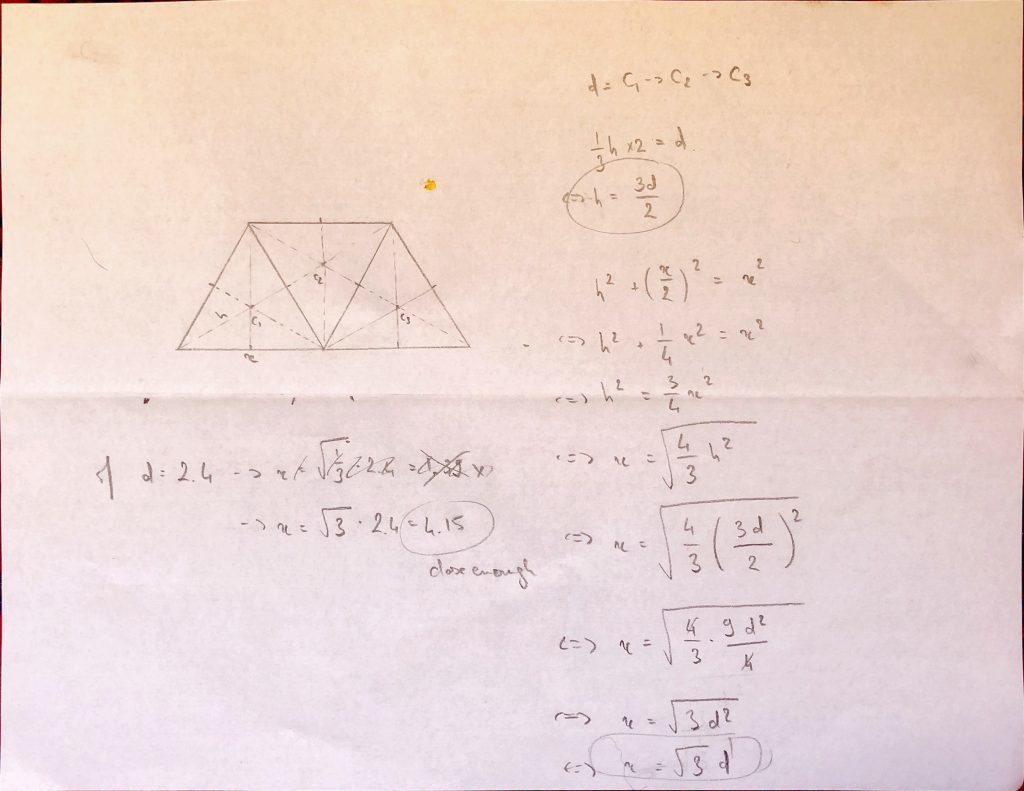 d = C₁ -> C₂ -> C₃
1/3 h x2 = d.
<=> h = 3d/2
h² + (x/2)² = x²
<=> h² + 1/4 x² = x²
<=> h² = 3/4 x²
<=> x = √(4/3 h²)
<=> x = √(4/3 (3d/2)²)
<=> x = √(4/3 · 9d²/4)
<=> x = √(3d²)
<=> x = √3 d
C₂
h C₁ C₃
x
d = 2.4 -> x
-> x = √3 · 2.4 = 4.15
close enough